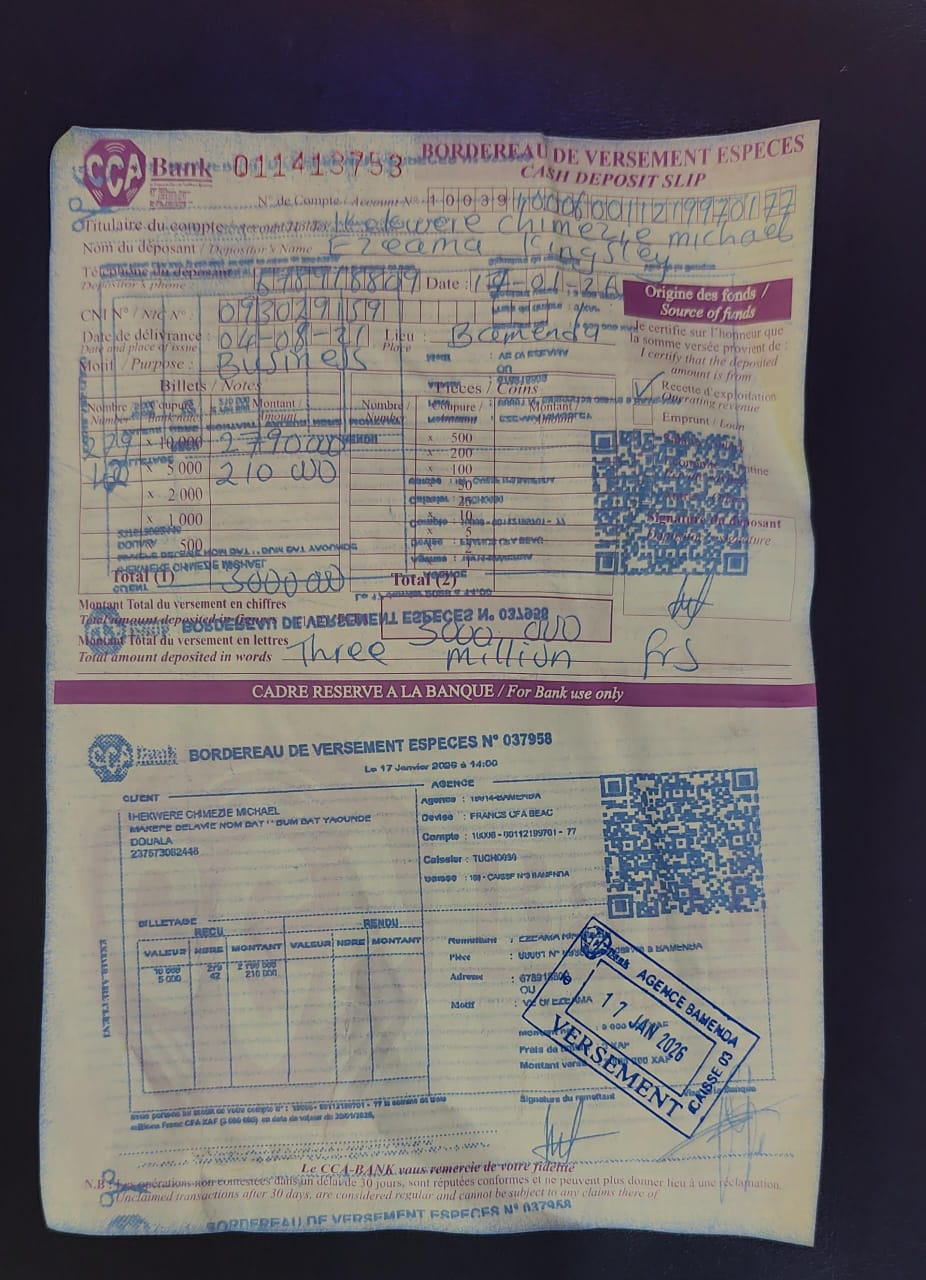 CCA Bank 011413753
BORDEREAU DE VERSEMENT ESPECES
CASH DEPOSIT SLIP
N° de Compte / Account N° 10039 10006 00112199701 77
Titulaire du compte Ihekwere Chimezie michael
Nom du déposant / Depositor's Name Ezeama Kingsley
Téléphone du déposant
Depositor's phone : Date : 17-01-26
CNI N° / NIC N° : 093029159
Date de délivrance : 04-08-21 Lieu : Bamenda
Date and place of issue Place
Motif / Purpose : Business
Origine des fonds /
Source of funds
Je certifie sur l'honneur que
la somme versée provient de :
I certify that the deposited
amount is from
Recette d'exploitation
Operating revenue
Emprunt / Loan
Signature du déposant
Billets / Notes Pièces / Coins
Nombre / Coupure / Montant / Nombre / Coupure / Montant /
279 x 10,000 2790000 x 500
x 5 000 210 000 x 200
x 100
x 2 000 50
x 1 000 x 10
500 x 5
Total (1) 3000000 Total (2)
Montant Total du versement en chiffres
Total amount deposited in figures 3000 000
Montant Total du versement en lettres
Total amount deposited in words Three million frs
CADRE RESERVE A LA BANQUE / For Bank use only
CCA Bank BORDEREAU DE VERSEMENT ESPECES N° 037958
Le 17 Janvier 2026 à 14:00
CLIENT
IHEKWERE CHIMEZIE MICHAEL
MAKEPE DELAVIE NOM BAT : DUM BAT YAOUNDE
DOUALA
237673082448
AGENCE
Agence : 10014-BAMENDA
Devise : FRANCS CFA BEAC
Compte : 10006 - 00112199701 - 77
Caissier : TUCHO030
- CAISSE N°3 BAMENDA
BILLETAGE
RECU RENDU
VALEUR NBRE MONTANT VALEUR NBRE MONTANT
10 000 279 2 790 000
5 000 42 210 000
Remettant : EZEAMA
Pièce :
Adresse :
OU
Motif :
Montant
Signature du remettant
CCA Bank AGENCE BAMENDA
17 JAN 2026
VERSEMENT
CAISSE 03
Le CCA-BANK vous remercie de votre fidélité
N.B : Les opérations non contestées dans un délai de 30 jours, sont réputées conformes et ne peuvent plus donner lieu à une réclamation.
Unclaimed transactions after 30 days, are considered regular and cannot be subject to any claims there of
BORDEREAU DE VERSEMENT ESPECES N° 037958